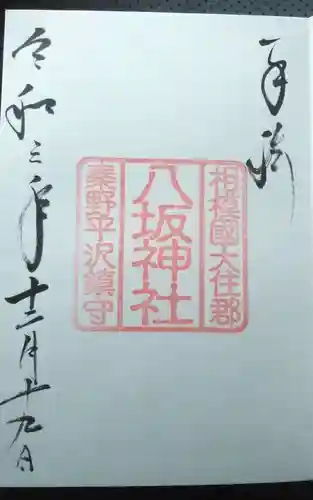 奉拝
相模國大住郡
八坂神社
秦野平沢鎮守
令和三年
十二月十九日